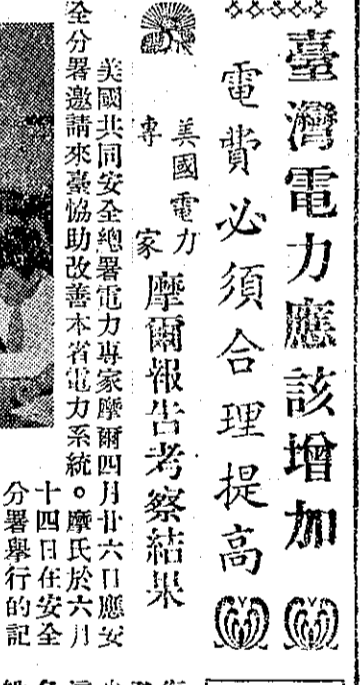 臺灣電力應該增加
電費必須合理提高
美國電力專家
摩爾報告考察結果
美國共同安全總署電力專家摩爾四月廿六日應安
全分署邀請來臺協助改善本省電力系統。摩氏於六月
十四日在安全
分署舉行的記